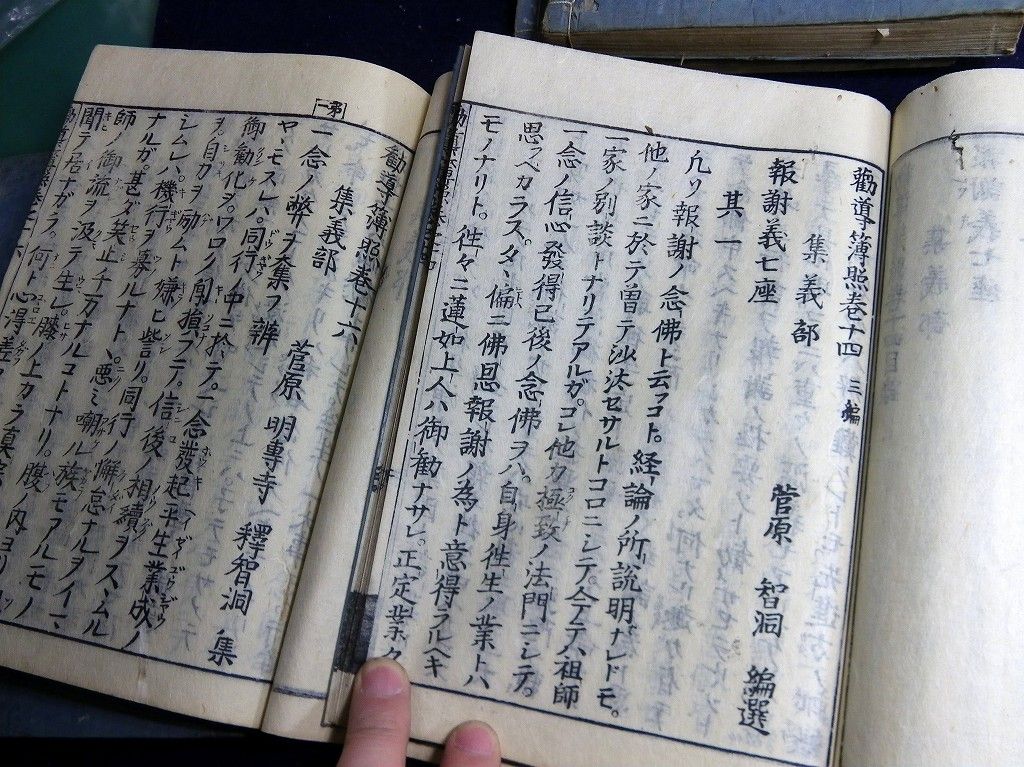 勸導簿照卷十四 三編
集義部 菅原 智洞 編選
報謝義七座
其一
凢ソ報謝ノ念佛ト云フコト。経論ノ所説明ナレドモ。
他ノ家ニ於テ曽テ沙汰セサルトコロニシテ。今テハ祖師
一家ノ別談トナリテアルガ。コレ他力極致ノ法門ニシテ。
一念ノ信心發得已後ノ念佛ヲハ。自身徃生ノ業トハ
思フベカラス。タヽ偏ニ佛恩報謝ノ為ト意得ラルヘキ
モノナリト。徃々ニ蓮如上人ハ御勧ナサレ。正定業ク
第一
勸導簿照卷十六
集義部 菅原 明專寺 釋智洞 集
一念ノ弊ヲ大集フ辨
ヤヽモスレハ。同行ノ中ニ於テ。一念發起平生業成ノ
御勧化ヲ。ワロク聞損フテ。信後ノ相續ヲスヽムル
ヲ。自力ヲ励ムト嫌ヒ呰リ。同行ノ懈怠ナルヲイマ
シムレハ。機行ヲ募ルナトヽ。悪ミ嘲ル族モアルモノ
ナルガ。甚ダ笑止千万ナルコトナリ。腹ノ内ヨリ
師ノ御流ヲ汲テ生レ。ヒサノ上カラ
聞テ居ナガラ。何ト心得差